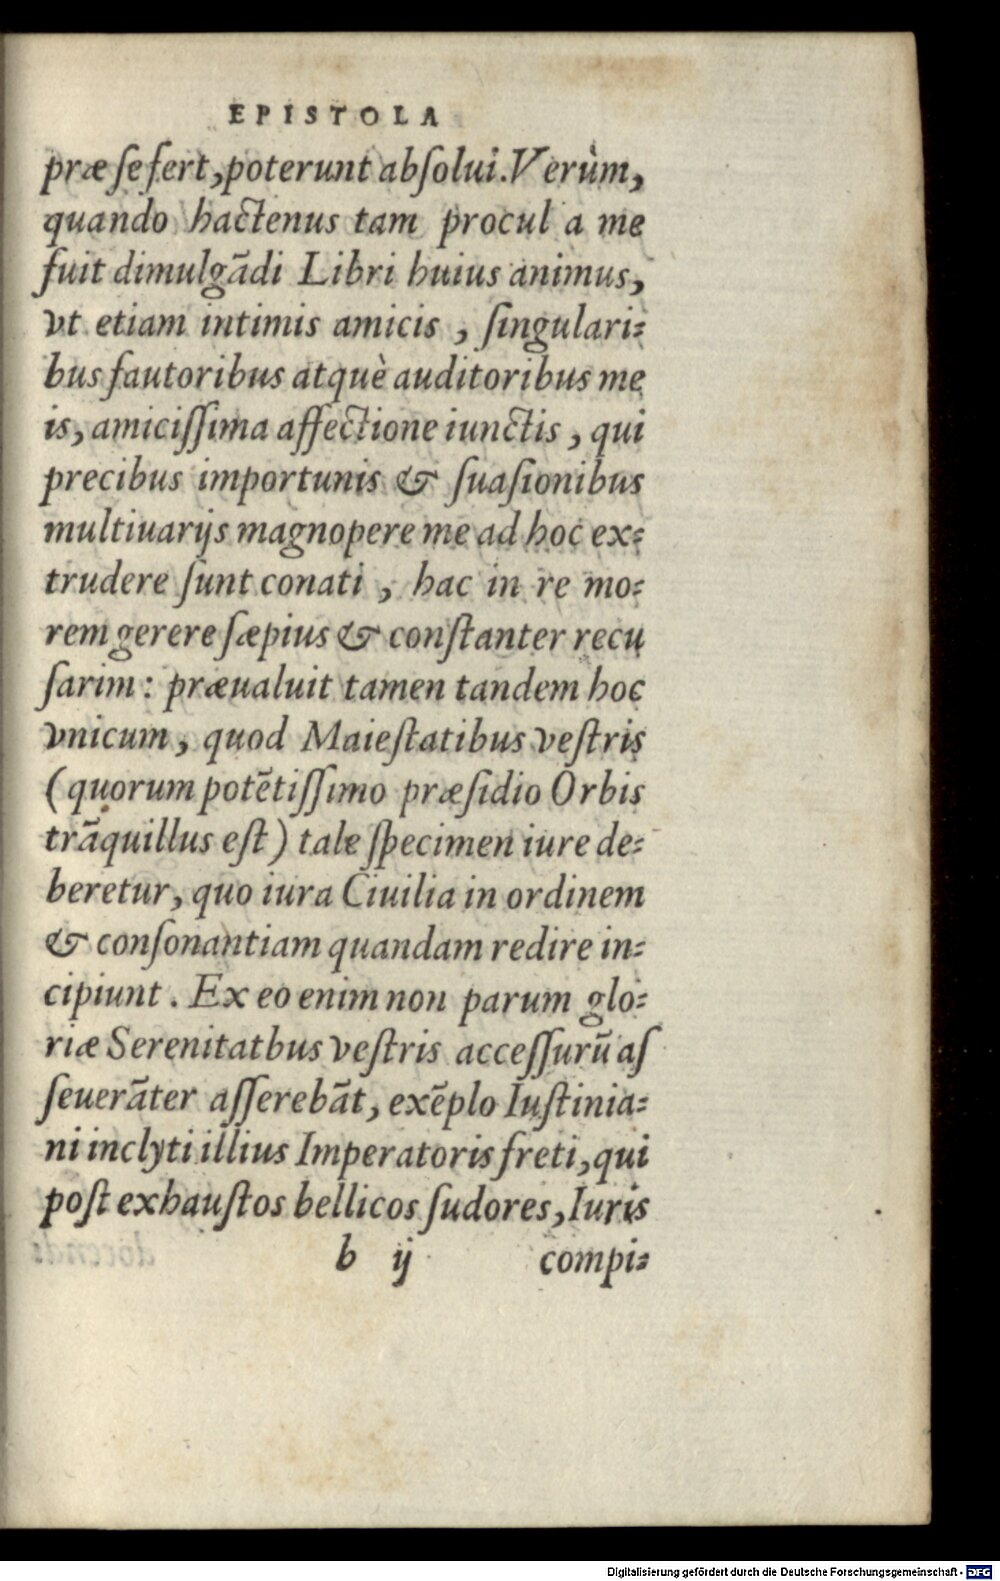 EPISTOLA
præ ſe fert, poterunt abſolui. Verùm,
quando hactenus tam procul a me
fuit dimulgādi Libri huius animus,
vt etiam intimis amicis, ſingulari⸗
bus fautoribus atquè auditoribus me
is, amiciſſima affectione iunctis, qui
precibus importunis & ſuaſionibus
multiuarijs magnopere me ad hoc ex⸗
trudere ſunt conati, hac in re mo⸗
rem gerere ſæpius & conſtanter recu
ſarim: præualuit tamen tandem hoc
vnicum, quod Maieſtatibus veſtris
(quorum potētiſſimo præſidio Orbis
trāquillus eſt) tale ſpecimen iure de⸗
beretur, quo iura Ciuilia in ordinem
& conſonantiam quandam redire in⸗
cipiunt. Ex eo enim non parum glo⸗
riæ Serenitatbus veſtris acceſſurū aſ
ſeuerāter aſſerebāt, exēplo Iuſtinia⸗
ni inclyti illius Imperatoris freti, qui
poſt exhauſtos bellicos ſudores, Iuris
b ij compi⸗
Digitalisierung gefördert durch die Deutsche Forschungsgemeinschaft - DFG